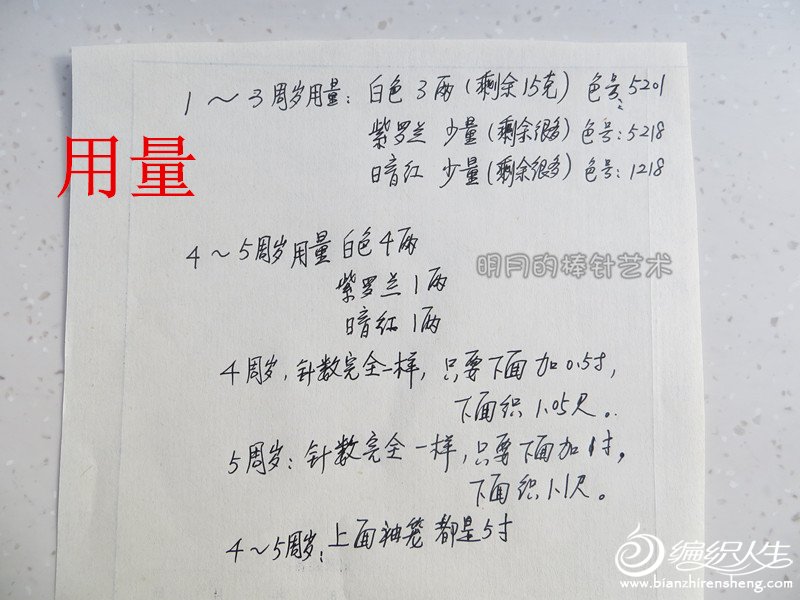 1～3周岁用量：白色3两（剩余15克）色号：5201
紫罗兰 少量（剩余很多）色号：5218
暗红 少量（剩余很多）色号：1218
用量
4～5周岁用量 白色4两
明月的棒针艺术
紫罗兰1两
暗红1两
4周岁，针数完全一样，只要下面加0.5寸，
下面织1.05尺。
5周岁：针数完全一样，只要下面加1寸，
下面织1.1尺。
4～5周岁：上面袖笼都是5寸
编织人生
www.bianzhirensheng.com